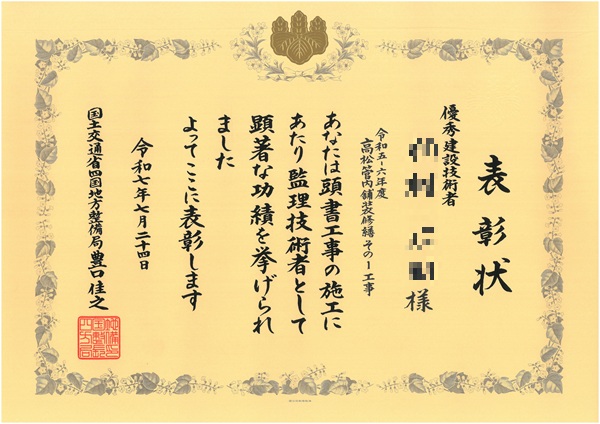 表彰状
優秀建設技術者
様
令和五-六年度
高松管内舗装修繕その1工事
あなたは頭書工事の施工に
あたり監理技術者として
顕著な功績を挙げられ
ました
よってここに表彰します
令和七年七月二十四日
国土交通省四国地方整備局長 豊口佳之